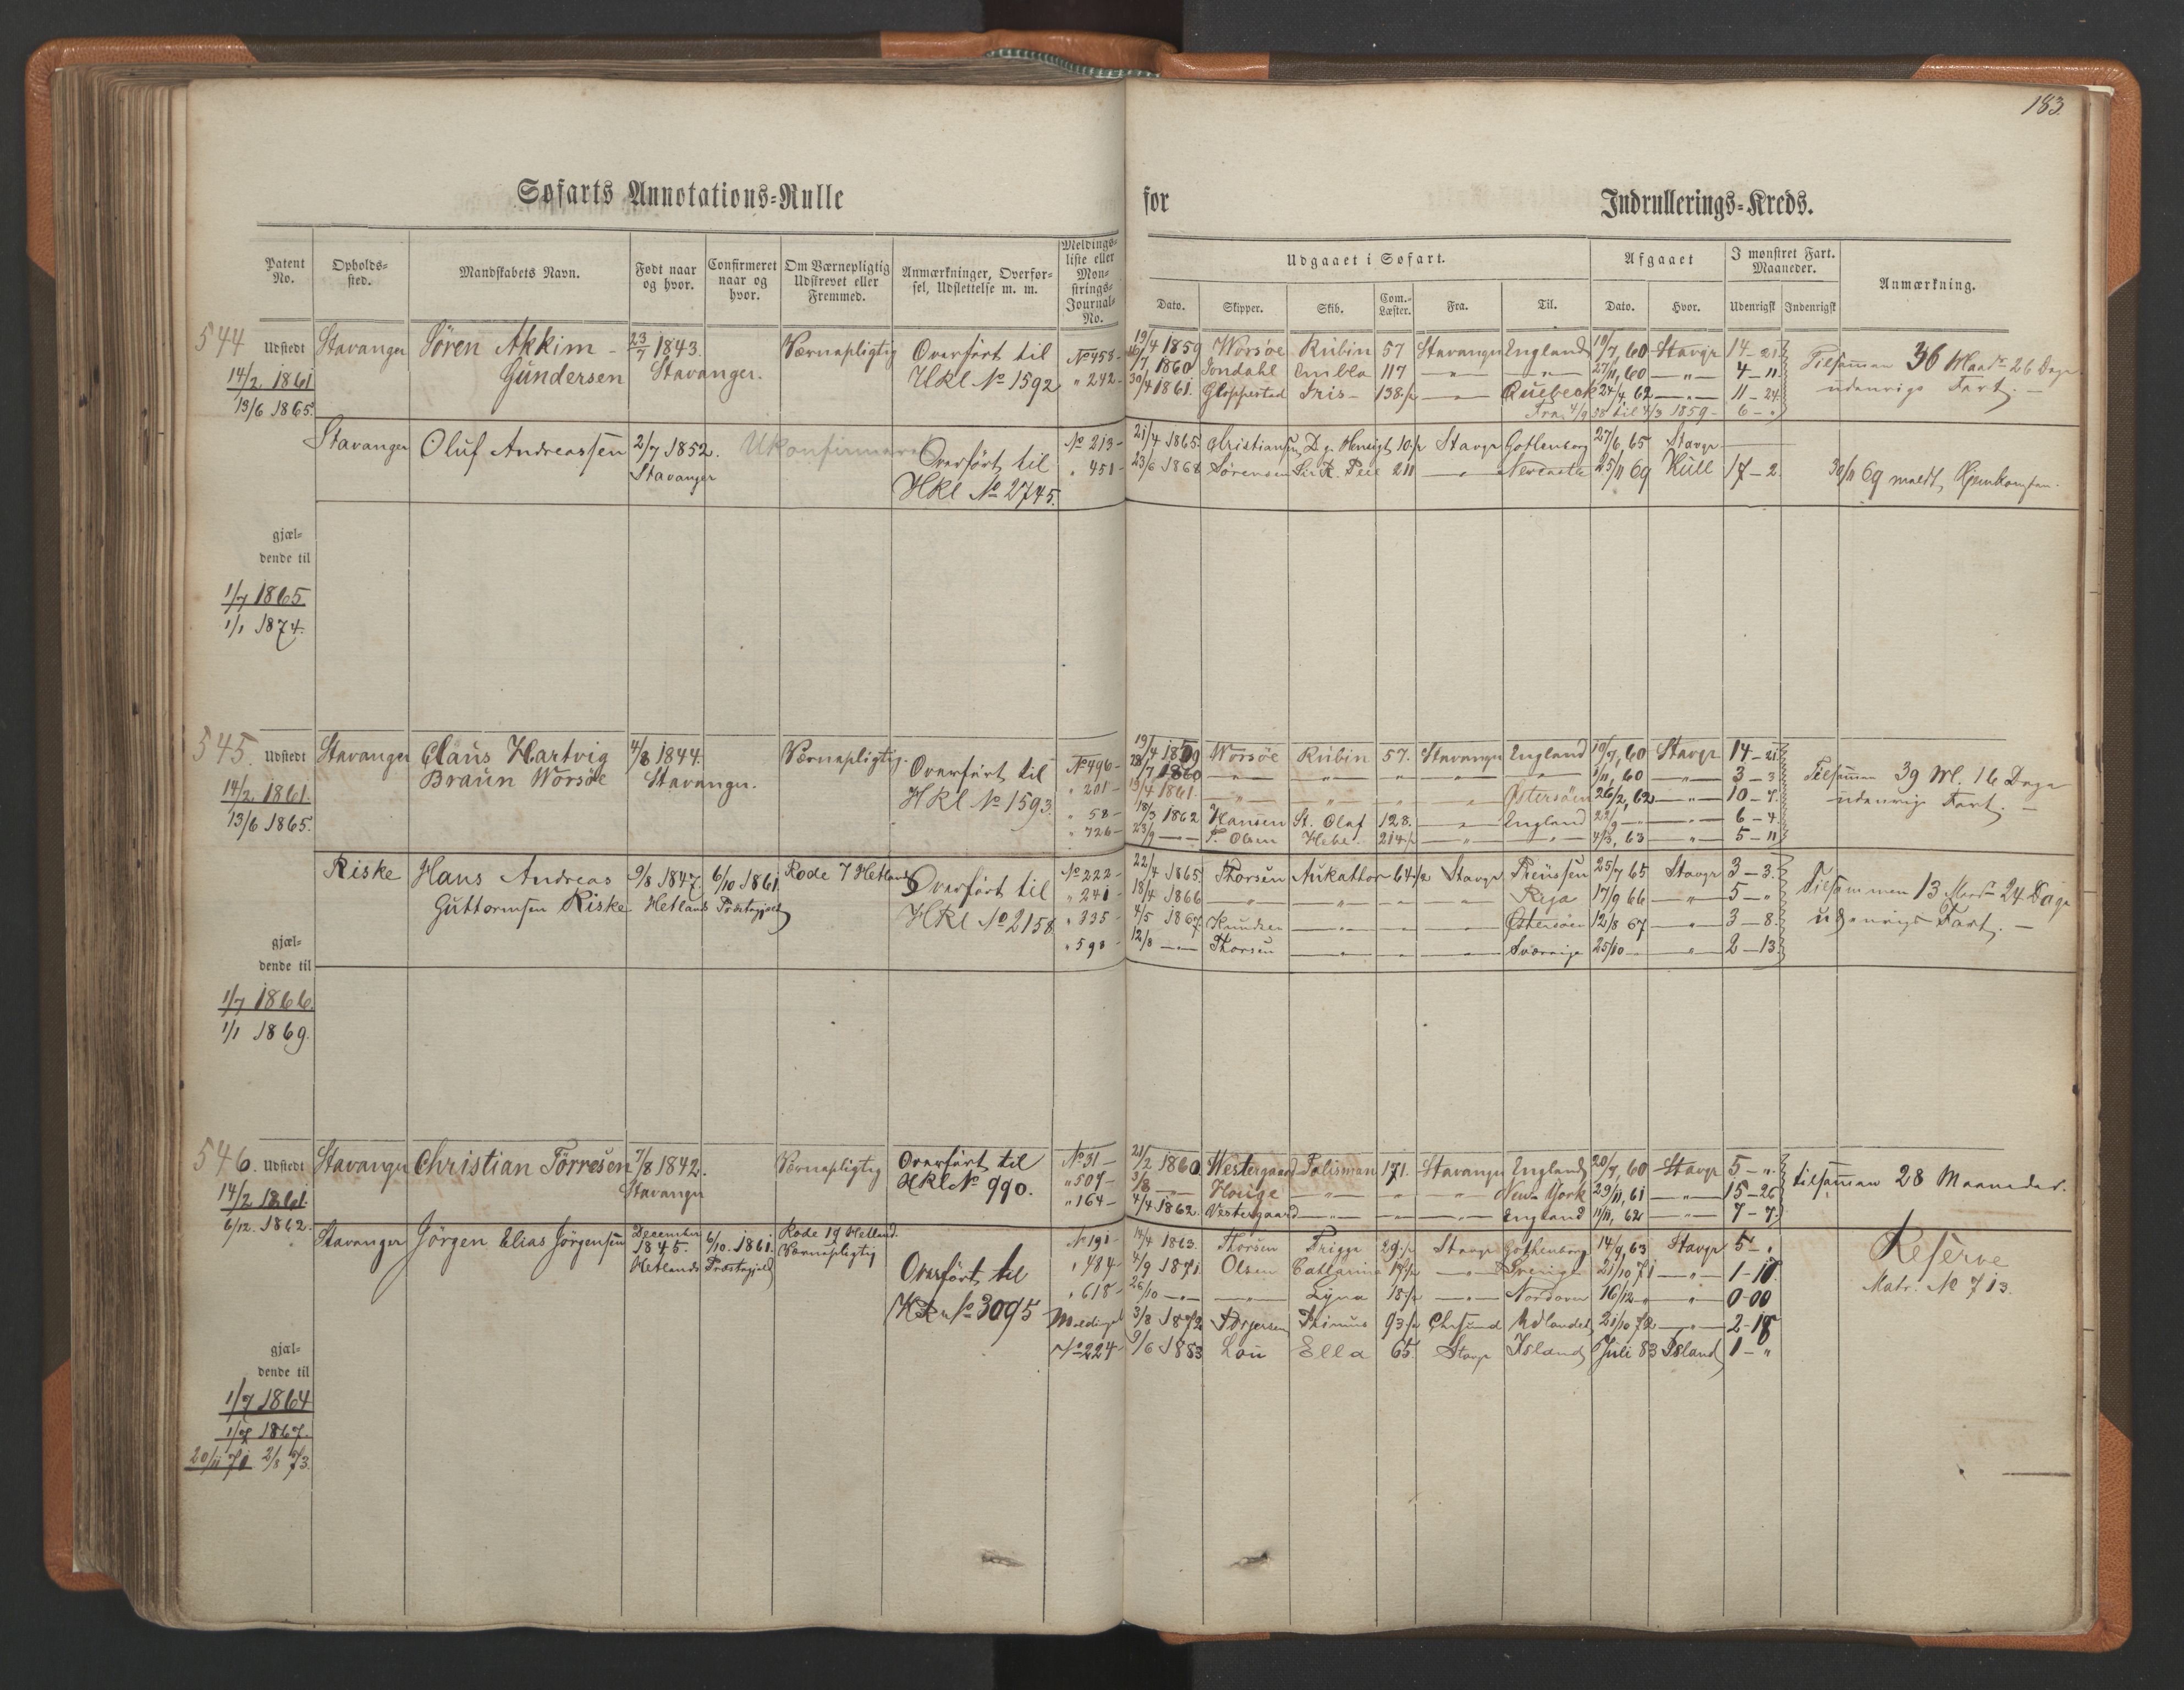 183.
Søfarts Annotations=Rulle for Indrullerings=Kreds.
Patent No. Opholds=sted. Mandskabets Navn. Født naar og hvor. Confirmeret naar og hvor. Om Værnepligtig Udskrevet eller Fremmed. Anmærkninger, Overfør=sel, Udslettelse m. m. Meldings=liste eller Mon=strings=Journal=No.
Udgaaet i Søfart. Afgaaet I mønstret Fart. Maaneder. Anmærkning.
Dato. Skipper. Skib. Com.=Læster. Fra. Til. Dato. Hvor. Udenrigsk Indenrigsk
544 Udstedt Stavanger Søren Akkim 23/7 1843. Værnepligtig Overført til No 458
14/2 1861 Gundersen Stavanger. HKl No 1592 " 242
13/6 1865.
19/4 1859 Worsøe Rubin 57 Stavanger England 10/7, 60 Stavgr 14-21
1860 Jondahl Embla 117 — " — — " — 27/11, 60 — " — 4-11
30/4 1861. Gloppestad Iris 138 — " — Quebeck 24/4, 62 — " — 11-24
Fra 4/9 58 til 4/3 1859 - 6 - "
Tilsamman 36 Maadr 26 Dage
udenrigs Fart. —
Stavanger Oluf Andreassen 2/7 1852. Ukonfirmeret Overført til No 213
Stavanger HKl No 2745. " 451
21/4 1865. Christiansen D. g. Hensigt 10 Stavgr Gothenborg 27/6, 65 Stavgr
23/6 1868 Sørensen Sir R. Peel 211 — " — Newcastle 25/11 69 Hull 17-2.
30/11 69 meldt Hjemkomsten.
gjæl=
dende til
1/7 1865
1/1 1874.
545. Udstedt Stavanger Claus Hartvig 4/8 1844. Værnepligtig. Overført til No 496
14/2 1861. Braun Worsøe Stavanger. HKl No 1593. " 201
13/6 1865. " 58
" 726
19/4 1859 Worsøe Rubin 57. Stavanger England 10/7, 60 Stavgr 14-21
28/7 1860 — " — — " — " — " — — " — 1/11, 60 — " — 3-3
13/4 1861 — " — — " — " — " — Østersøen 26/2, 62 — " — 10-7.
18/3 1862 Hansen St. Olaf 128. — " — England 22/9 — — " — 6-4
23/9 — T. Olsen Hebe 214 — " — — " — 4/3, 63 " 5-11
Tilsamman 39 M. 16 Dage
udenrigs Fart. —
Riske Hans Andreas 9/8 1847. 6/10 1861 Rode 7 Hetland Overført til No 222
Guttormsen Riske Hetlands Præstegjeld HKl No 2158 " 241
" 335
" 598
22/4 1865 Thorsen Aukathor 64 Stavgr Preussen 25/7 65 Stavgr 3-3.
18/4 1866 — " — — " — " — " — Riga 17/9 66 — " — 5-"
4/5 1867. Knudsen — " — " — " — Østersøen 12/8 67 " 3-8.
12/8 — Thorsen — " — " — " — Sverrige 25/10 — " 2-13
Tilsammen 13 Maadr 24 Dage
udenrigs Fart. —
gjæl=
dende til
1/7 1866.
1/1 1869.
546. Udstedt Stavanger Christian Tørresen 7/8 1842. Værnepligtig Overført til No 31
14/2 1861. Stavanger HKl No 990. " 507
6/12. 1862. " 164
21/2 1860. Westergaard Talisman 171. Stavanger England 20/7, 60 Stavgr 5-".
3/8 — Houge — " — " — " — New York 29/11, 61 — " — 15-26
4/4 1862. Vestergaard — " — — " — England 11/11, 62 " 7-7.
tilsamman 28 Maaneder.
Stavanger Jørgen Elias Jørgensen December 1845. 6/10. 1861. Rode 19 Hetland. No 191
Hetlands Præstegjeld Værnepligtig Overført til " 484
HKl No 3095 " 618
Meldingsl
No 224
14/4 1863. Thorsen Frigga 29 Stavgr Gothenborg 14/9, 63 Stavgr 5-".
4/9 1871. Olsen Cathrina 17 — " — Sverige 21/10 71 — " — 1-17.
26/10 — — " — Lyna 15 — " — Nordover 16/12 " " 0-00
3/8 1872 Torgersen Thimus 93 Chrsund Udlandet 21/10 72 — " — 2-18
9/6 1883 Lou Ella 65 Stavgr Island Juli 83 Island 1-"
Reserve
Matr. No 713.
gjæl=
dende til
1/7 1864
1/7 1867.
20/11 71 2/8 73.